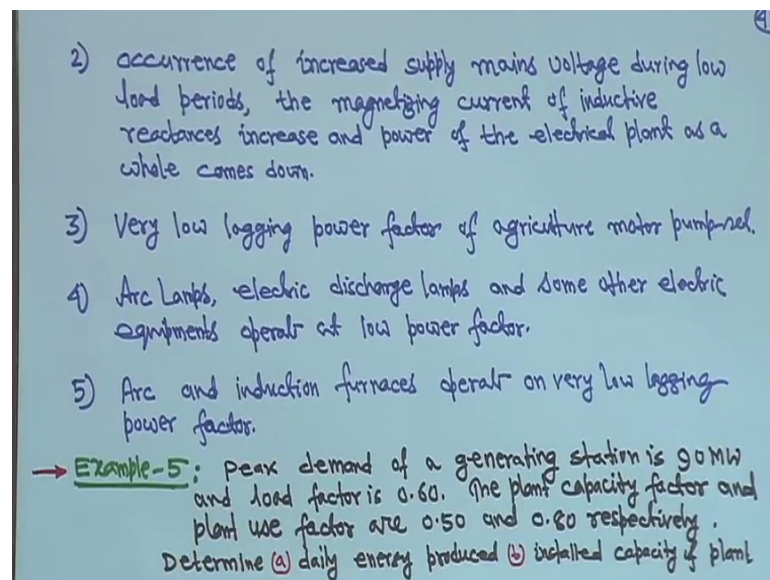 4
2) occurrence of increased supply mains voltage during low
load periods, the magnetizing current of inductive
reactances increase and power of the electrical plant as a
whole comes down.
3) Very low lagging power factor of agriculture motor pump-set.
4) Arc Lamps, electric discharge lamps and some other electric
equipments operate at low power factor.
5) Arc and induction furnaces operate on very low lagging
power factor.
→ Example-5: peak demand of a generating station is 90MW
and load factor is 0.60. The plant capacity factor and
plant use factor are 0.50 and 0.80 respectively.
Determine (a) daily energy produced (b) installed capacity of plant